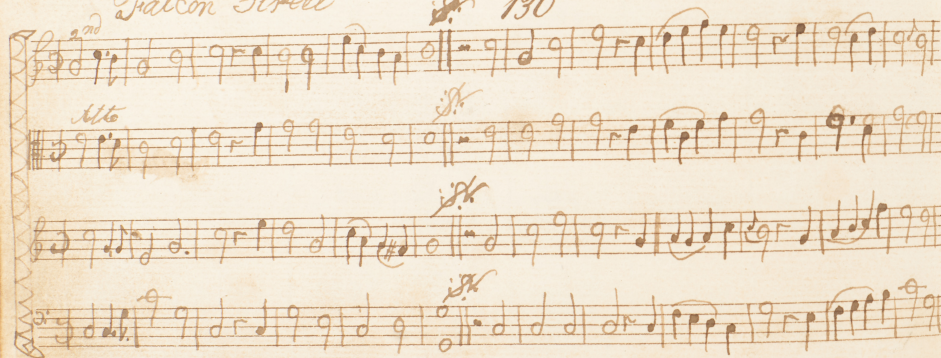 Falcon Street 130
2nd
Alto